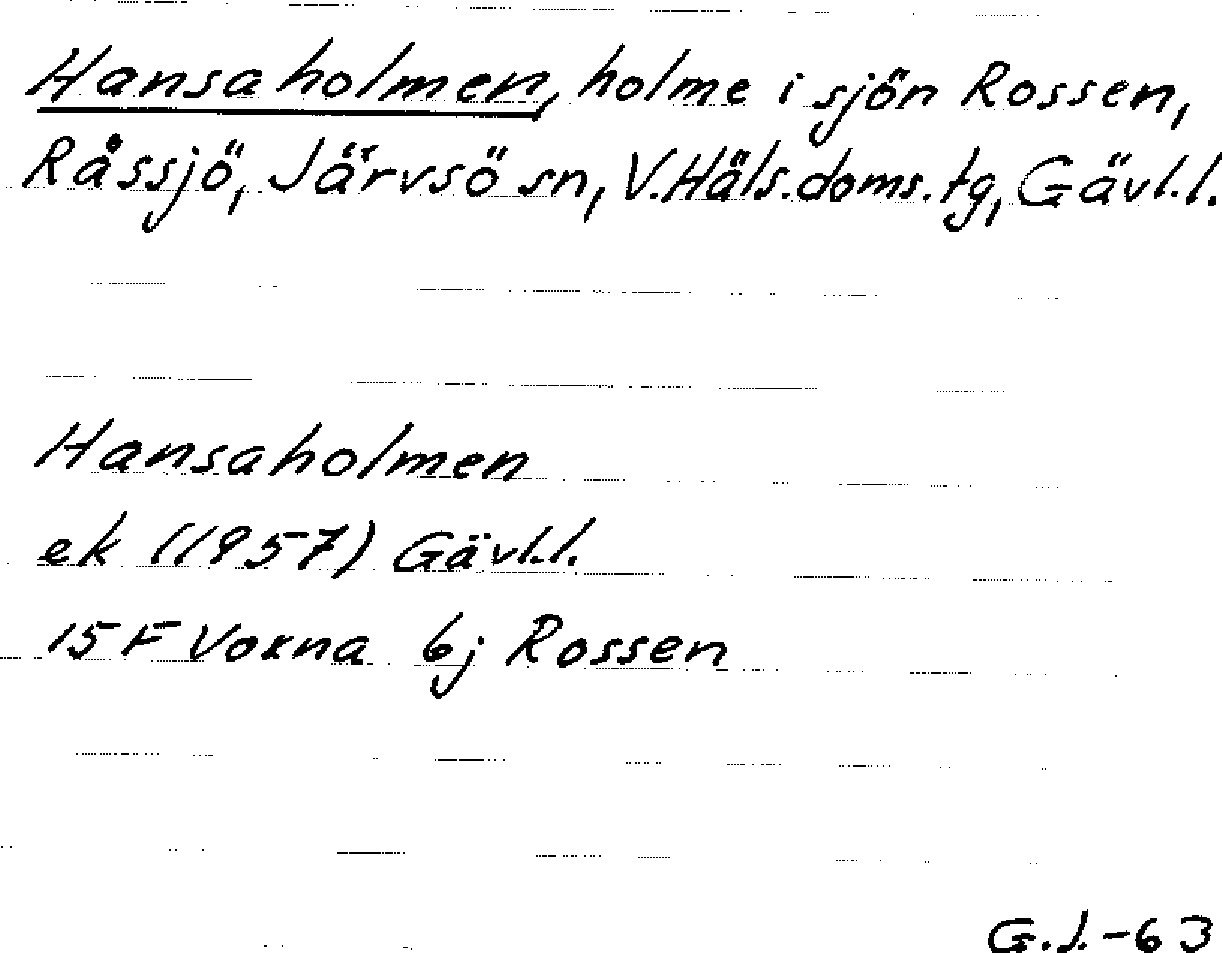 Hansaholmen, holme i sjön Rossen,
Råssjö, Järvsö sn, V.Häls.doms.tg, Gävl.l.
Hansaholmen
ek (1957) Gävl.l.
15 F Voxna 6j Rossen
G.J.-63